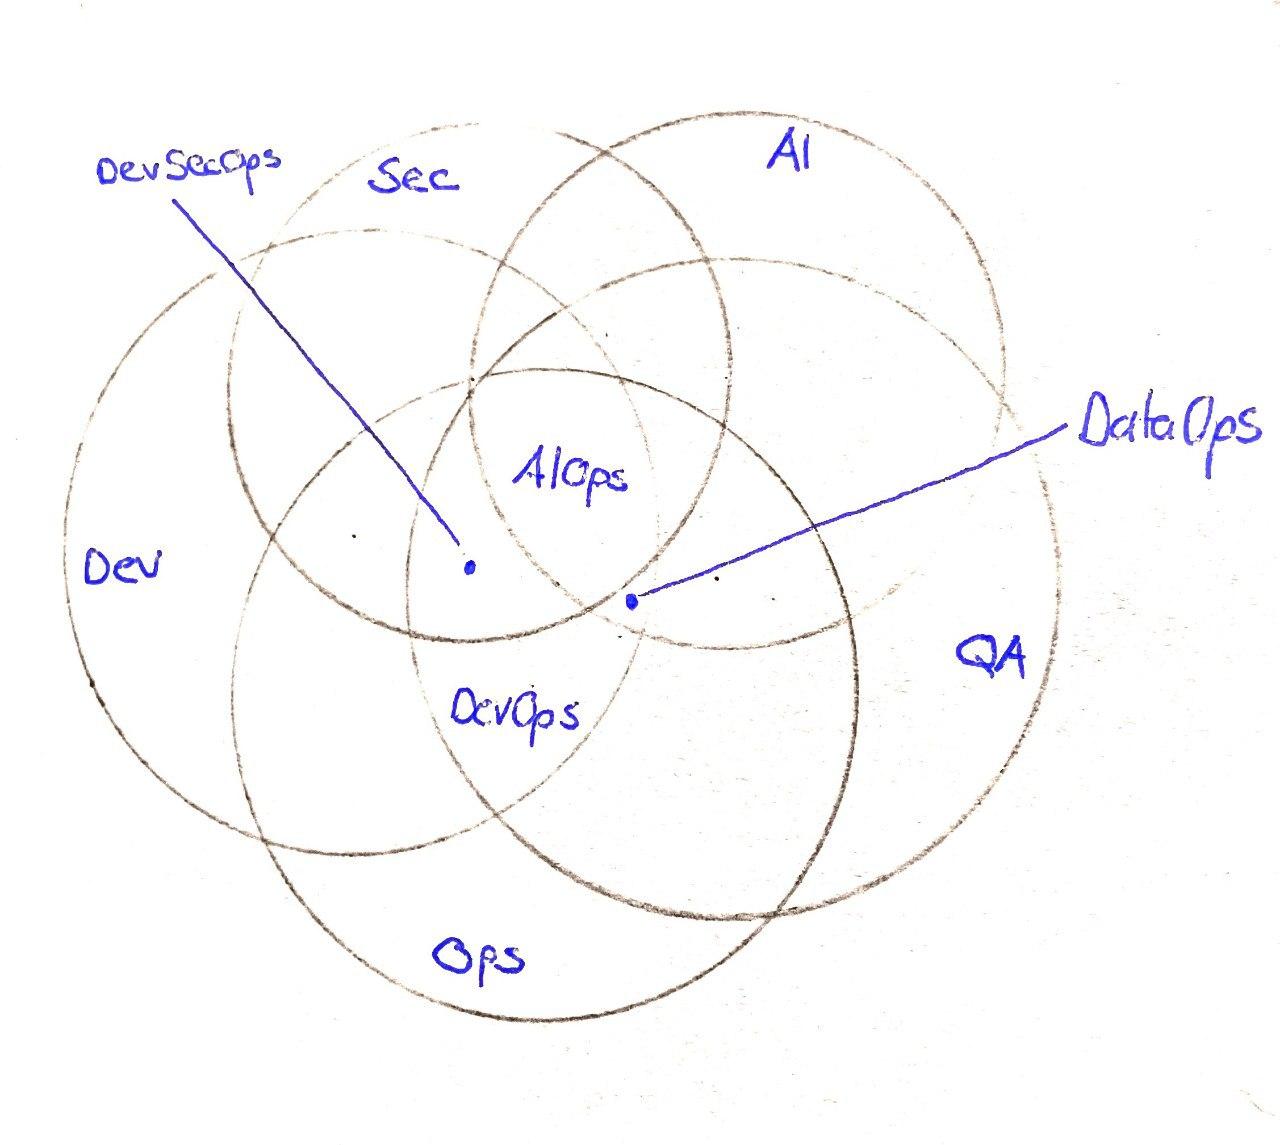 DevSecOps
Sec
AI
DataOps
AIOps
Dev
QA
DevOps
Ops